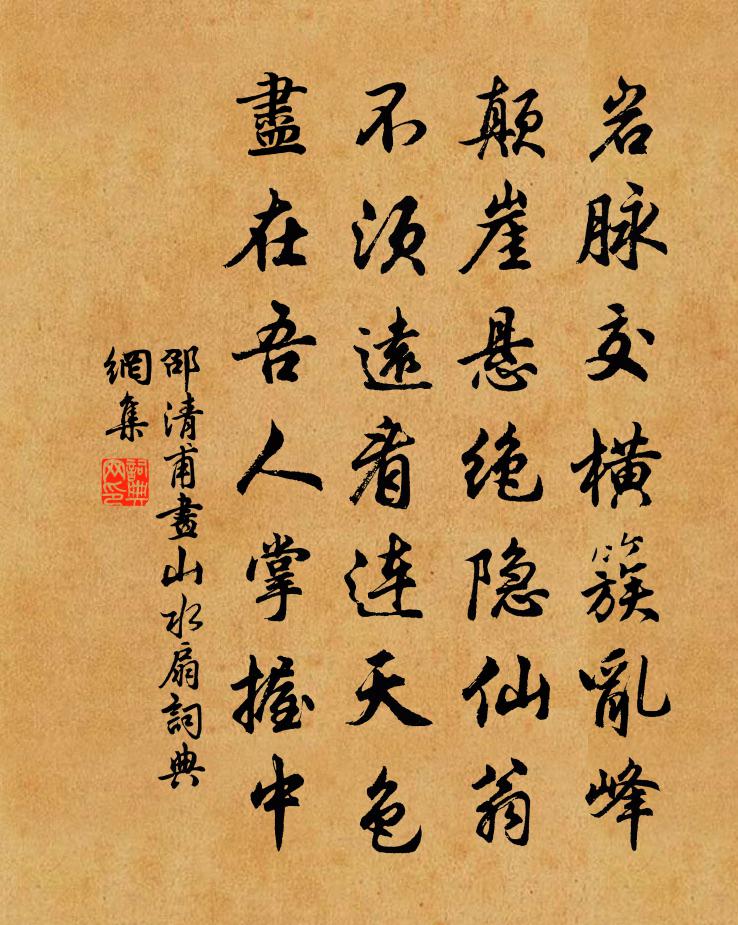 岩脉交横簇亂峰
颠崖悬绝隐仙翁
不须遠看连天色
盡在吾人掌握中
邵清甫畫山水扇詞典
網集
詞典
网印